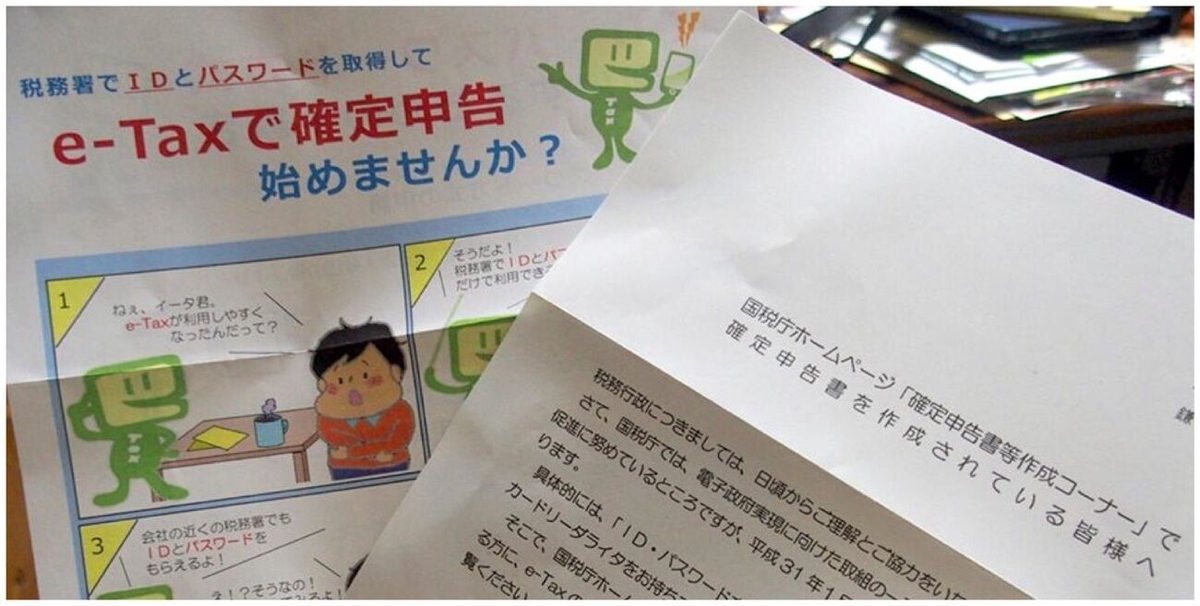 税務署でIDとパスワードを取得して
e-Taxで確定申告
始めませんか?
Tax
1
ねぇ、イータ君。
e-Taxが利用しやすく
なったんだって?
Tax
2
そうだよ!
税務署でIDとパス
だけで利用でき
3
会社の近くの税務署でも
IDとパスワードを
もらえるよ!
え!?そうなの!
鎌
国税庁ホームページ「確定申告書等作成コーナー」で
確定申告書を作成されている皆様へ
税務行政につきましては、日頃からご理解とご協力をいた
さて、国税庁では、電子政府実現に向けた取組の一
促進に努めているところですが、平成31年1月
ります。
具体的には、「ID・パスワード
カードリーダライタをお持ち
る方に、e-Taxの
そこで、国税庁ホーム
覧ください